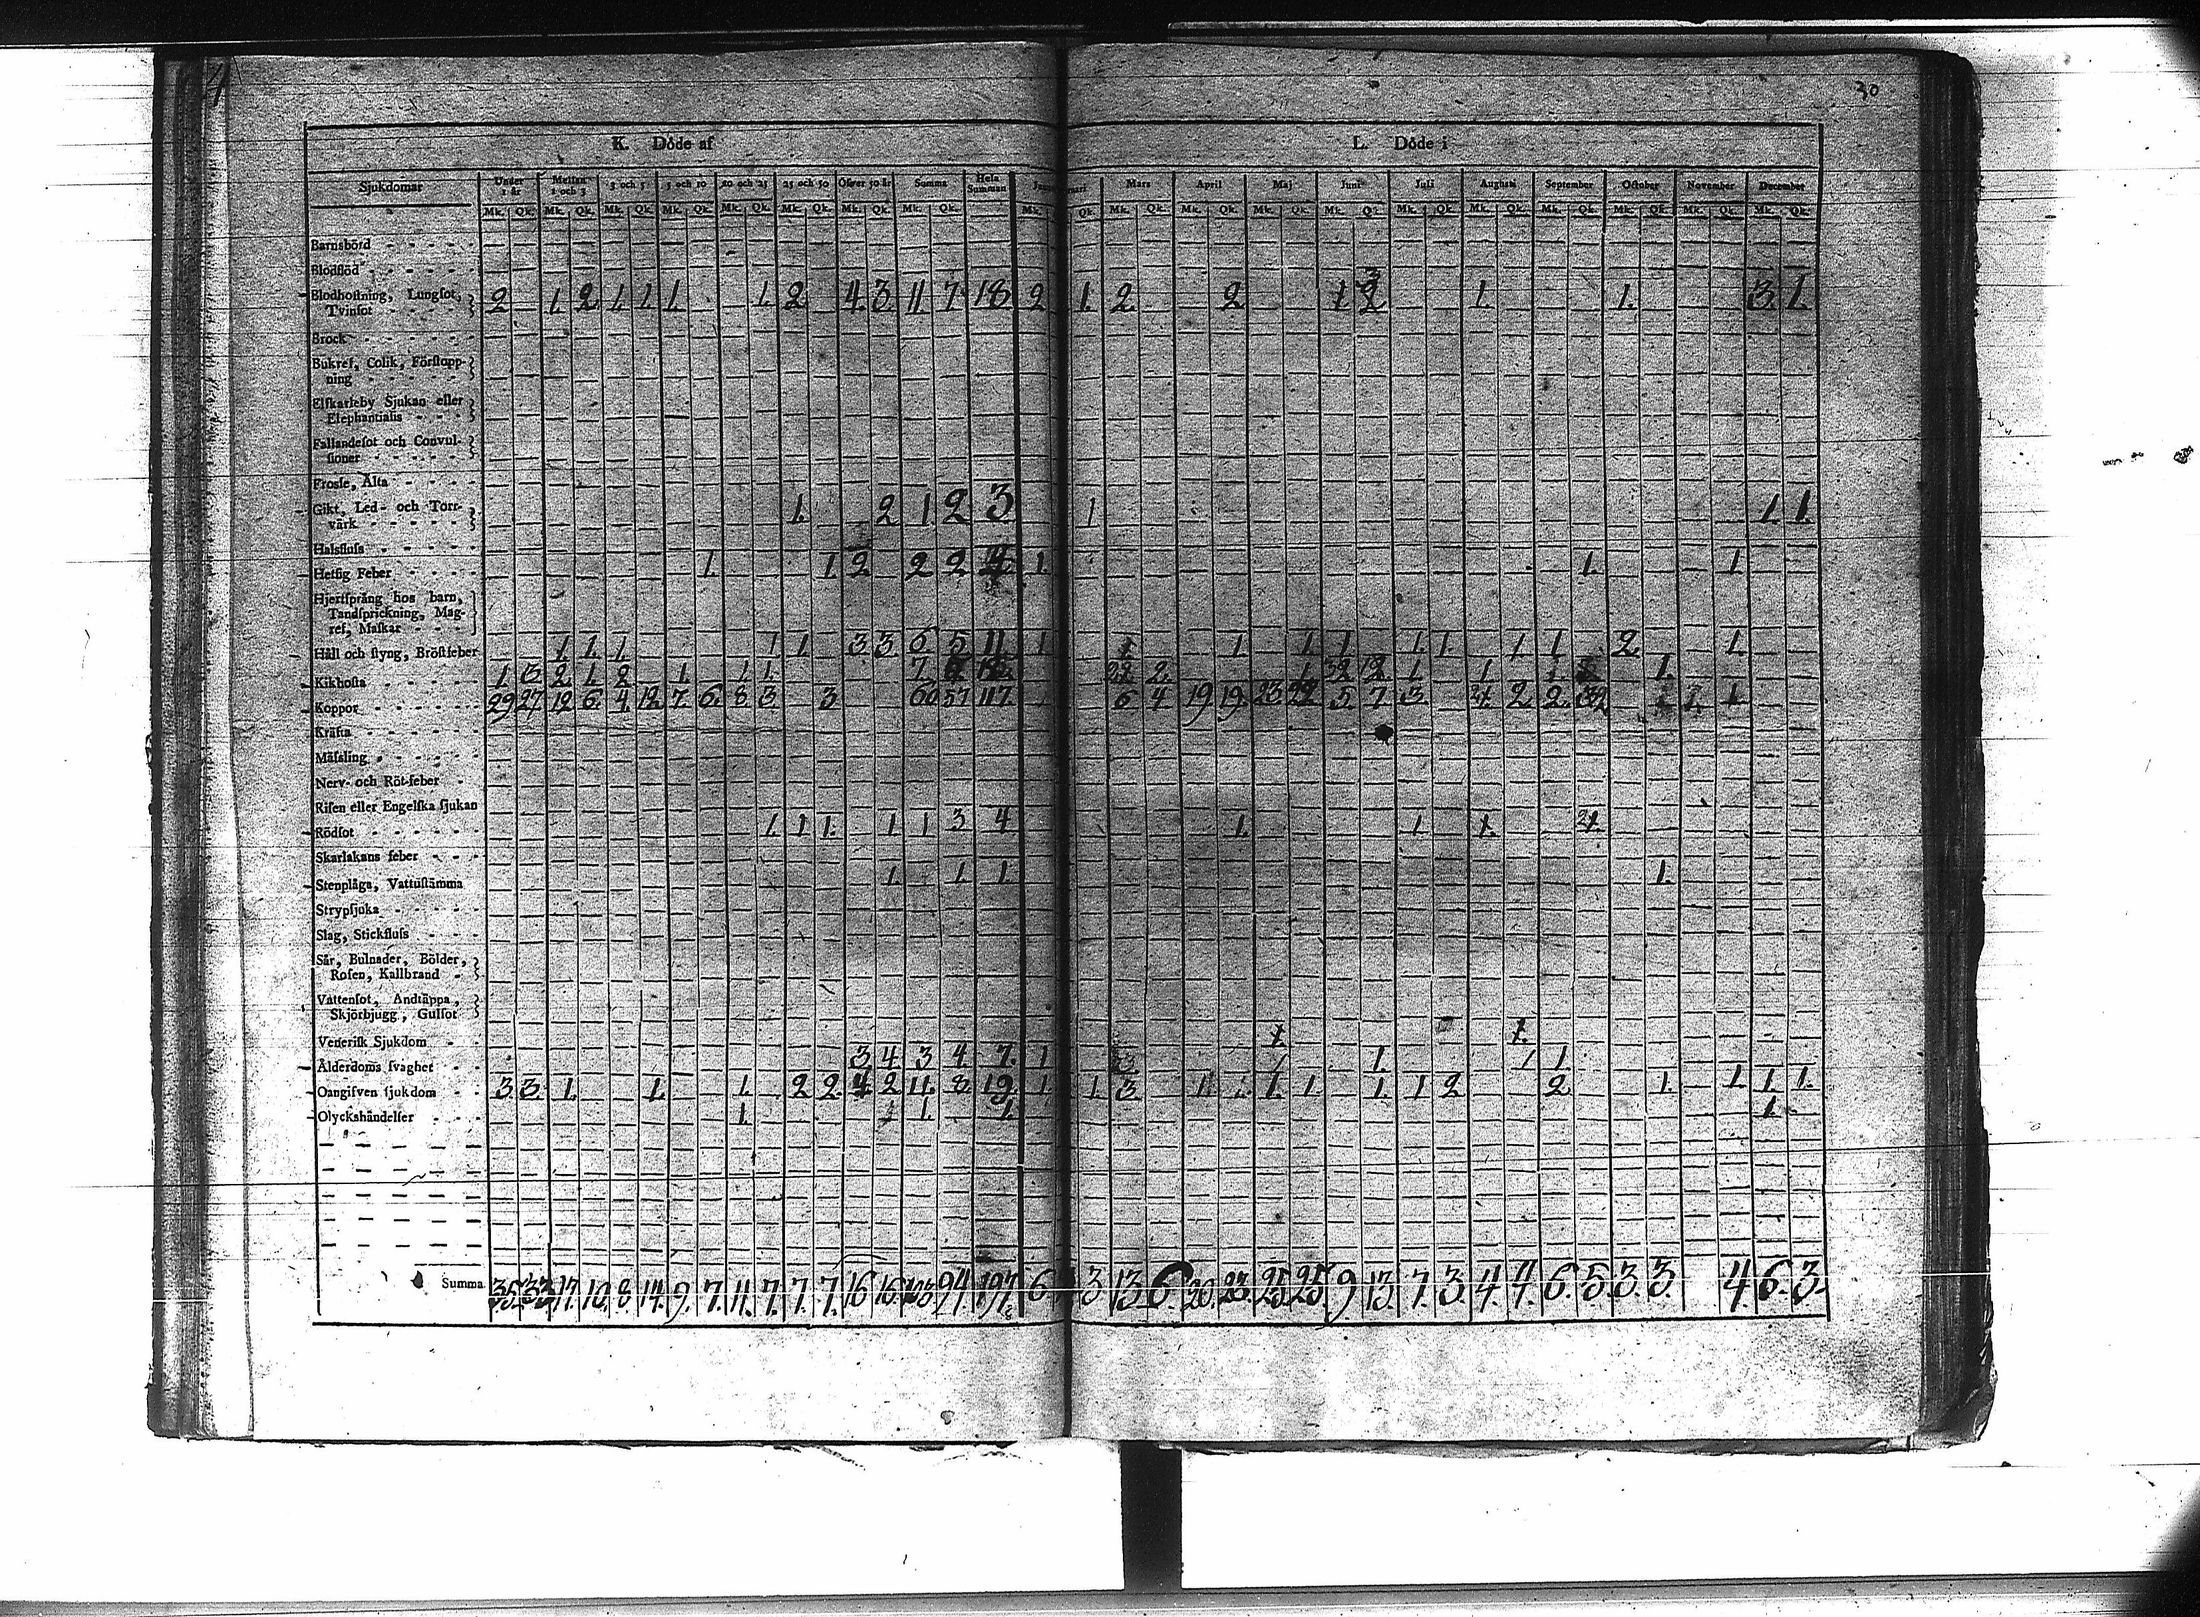 30
K. Döde af L. Döde i
Sjukdomar Under 1 år Mellan 1 och 3 3 och 5 5 och 10 10 och 25 25 och 50 Öfver 50 år Summa Hela Summan Mars April Maj Juni Juli Augusti September October November December
Mk. Qk. Mk. Qk. Mk. Qk. Mk. Qk. Mk. Qk. Mk. Qk. Mk. Qk. Mk. Qk. Mk. Qk. Mk. Qk. Mk. Qk. Mk. Qk. Mk. Qk. Mk. Qk. Mk. Qk. Mk. Qk. Mk. Qk. Mk. Qk. Mk. Qk.
Barnsbörd
Blodflöd
Blodhostning, Lungsot, 2 1. 2 1. 1 1. 1. 2 4. 3. 11 7 18. 2 1. 2. 2 1. 1. 3. 1.
Tvinsot
Brock
Bukref, Colik, Förstopp-
ning
Elfkarleby Sjukan eller
Elephantiasis
Fallandesot och Convul-
sioner
Frossa, Älta
Gikt, Led- och Torr- 1. 2 1 2 3 1 1. 1.
värk
Halsfluss
Hetsig Feber 1. 1. 2 2 2 1. 1. 1.
Hjertsprång hos barn,
Tandsprickning, Mag-
ref, Maskar
Håll och styng, Bröstfeber 1. 1. 1. 1 1. 3 3. 6. 5. 11. 1 1. 1. 1. 1. 1. 1 1. 2. 1.
Kikhosta 1. 3 2. 1. 2. 1. 1. 1. 7 2. 1. 1. 1. 1.
Koppor 29 27 12 6. 4. 12. 7. 6. 8 3. 3 60 57 117. 6. 4. 19 19. 23. 22 5. 7 3. 2 2.
Kräfta
Mässling
Nerv- och Röt-feber
Risen eller Engelska sjukan
Rödsot 1. 1 1. 1 1 3 4 1. 1
Skarlakans feber
Stenplåga, Vattustämma 1. 1 1. 1.
Strypsjuka
Slag, Stickfluss
Sår, Bulnader, Bölder,
Rosen, Kallbrand
Vattensot, Andtäppa,
Skjörbjugg, Gulsot
Venerisk Sjukdom
Ålderdoms svaghet 3 4 3 4. 7. 1 1. 1 1.
Oangifven sjukdom 3 3. 1. 1. 1. 2 2. 4 2 11. 8. 19. 1. 1. 3. 1. 1. 1. 1 2 2. 1. 1 1. 1.
Olyckshändelser 1. 1 1. 1. 1.
Summa 35. 33 17. 10. 8. 14. 9. 7. 11. 7. 7. 7. 16 16. 103 94. 197. 6. 3. 13. 6. 20. 23. 25. 25. 9. 13. 7. 3. 4. 4. 6. 5. 3. 3. 4. 6. 3.